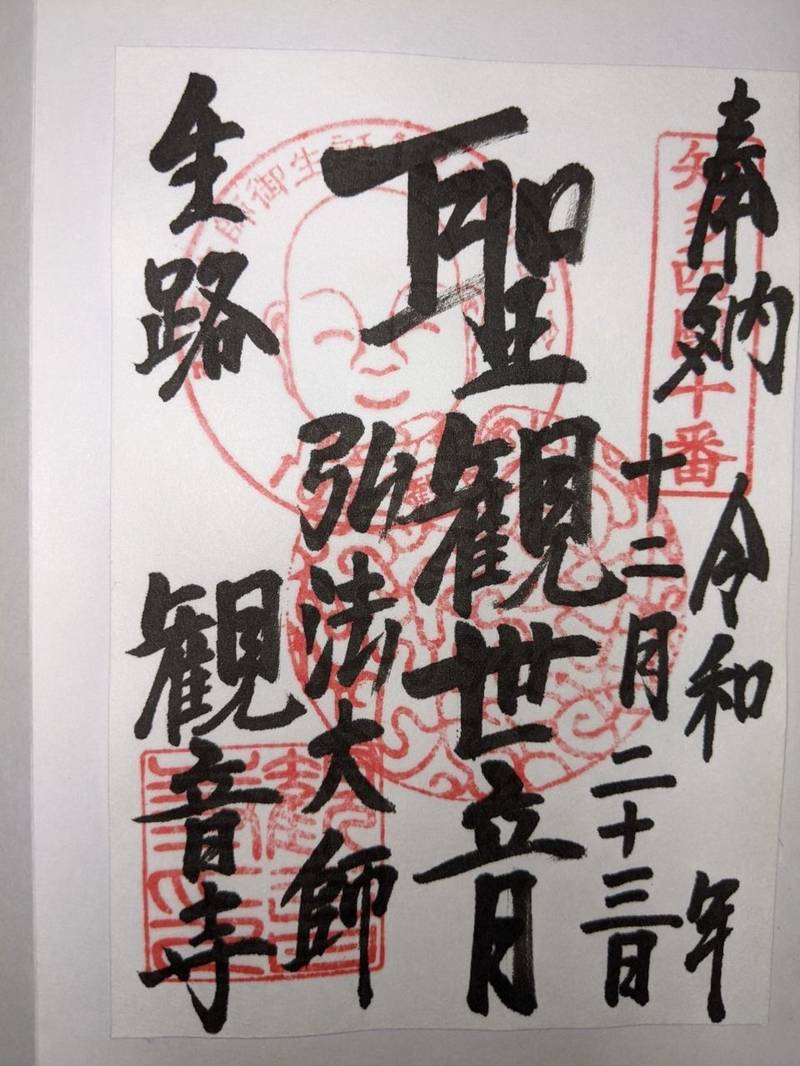 奉納
知多四国十番
令和 年
十二月二十三日
聖観世音
弘法大師
師御生誕
生路
観音寺